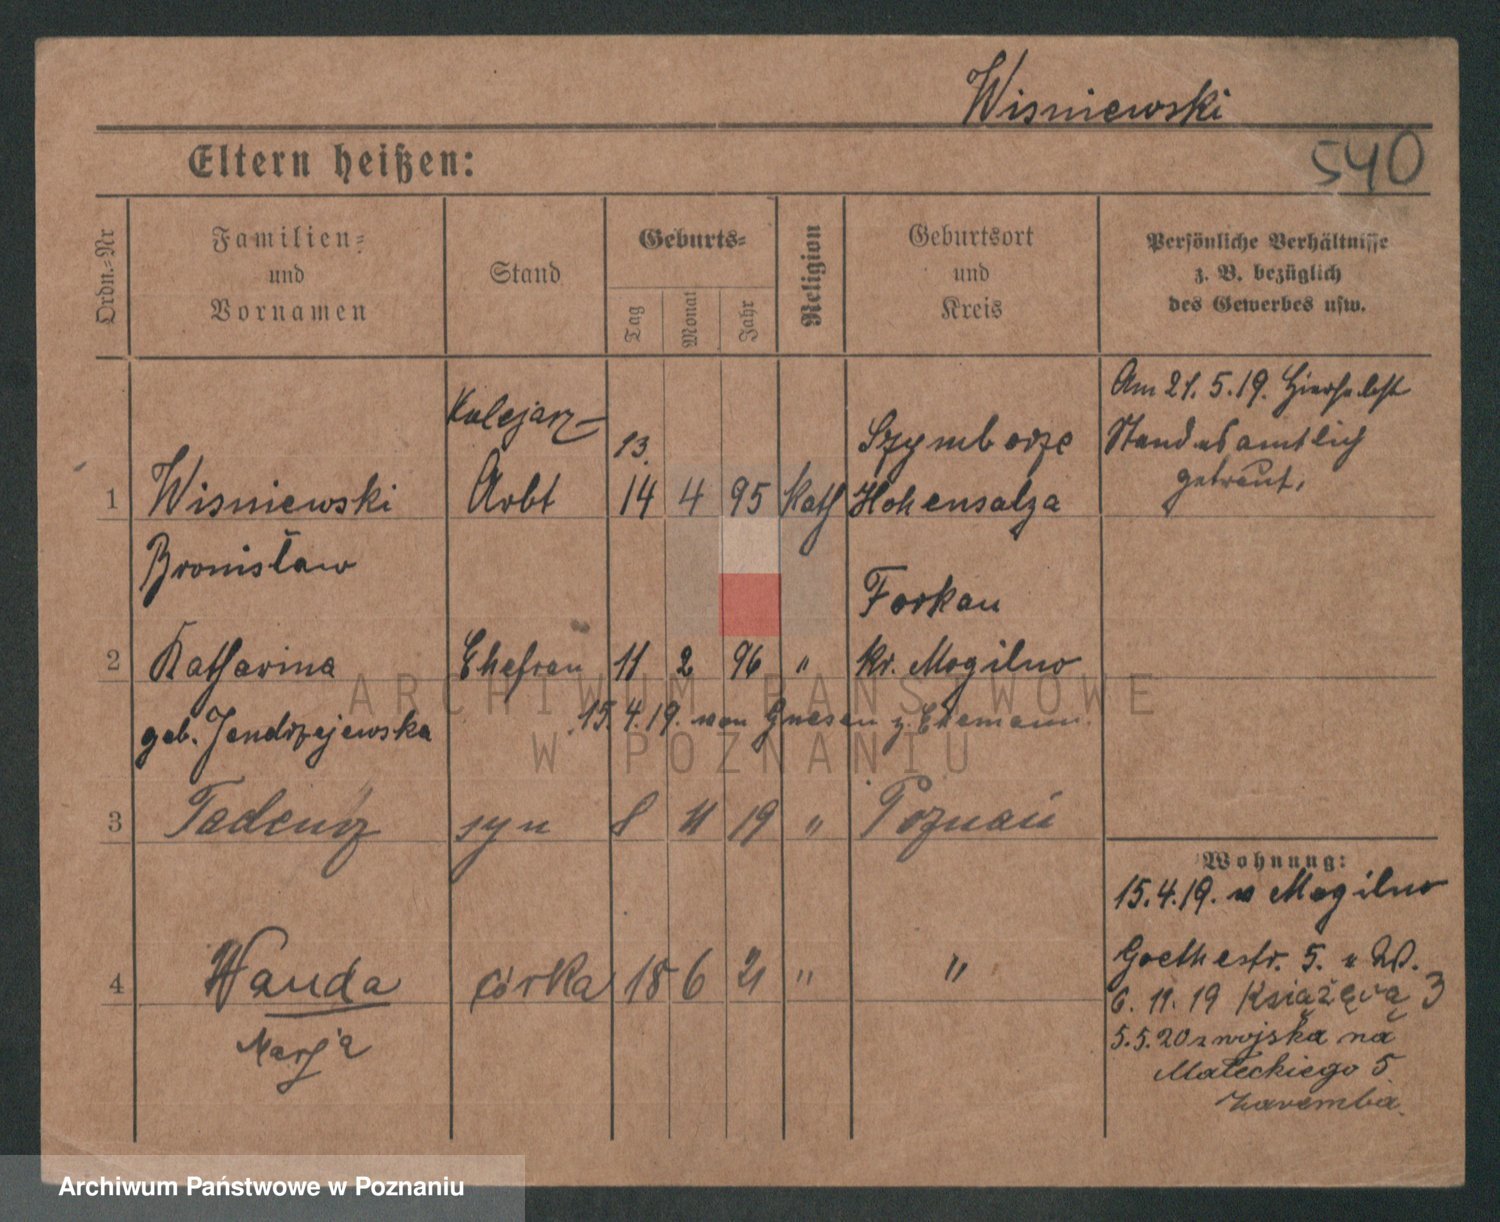 Wisniewski
540
Eltern heißen:
Ordn.-Nr
Familien-
und
Vornamen
Stand
Geburts-
Tag
Monat
Jahr
Religion
Geburtsort
und
Kreis
Persönliche Verhältnisse
z. B. bezüglich
des Gewerbes usw.
Am 21.5.19. hierselbst
Standesamtlich
getraut.
Kolejarz
13.
Szymborze
1 Wisniewski Arbt 14 4 95 Kath Hohensalza
Bronisław
Forkau
2 Katharina Ehefrau 11 2 96 " Kr. Mogilno
geb. Jendrzejewska 15.4.19. von Gnesen z. Ehemann.
3 Tadeusz syn 8 11 19 " Poznań
Wohnung:
15.4.19. v Mogilno
Goethestr. 5. v W.
6.11.19 Książęca 3
5.5.20 z wojska na
Małeckiego 5
Zaremba
4 Wanda córka 18 6 21 " "
Marja
ARCHIWUM PAŃSTWOWE
W POZNANIU
Archiwum Państwowe w Poznaniu